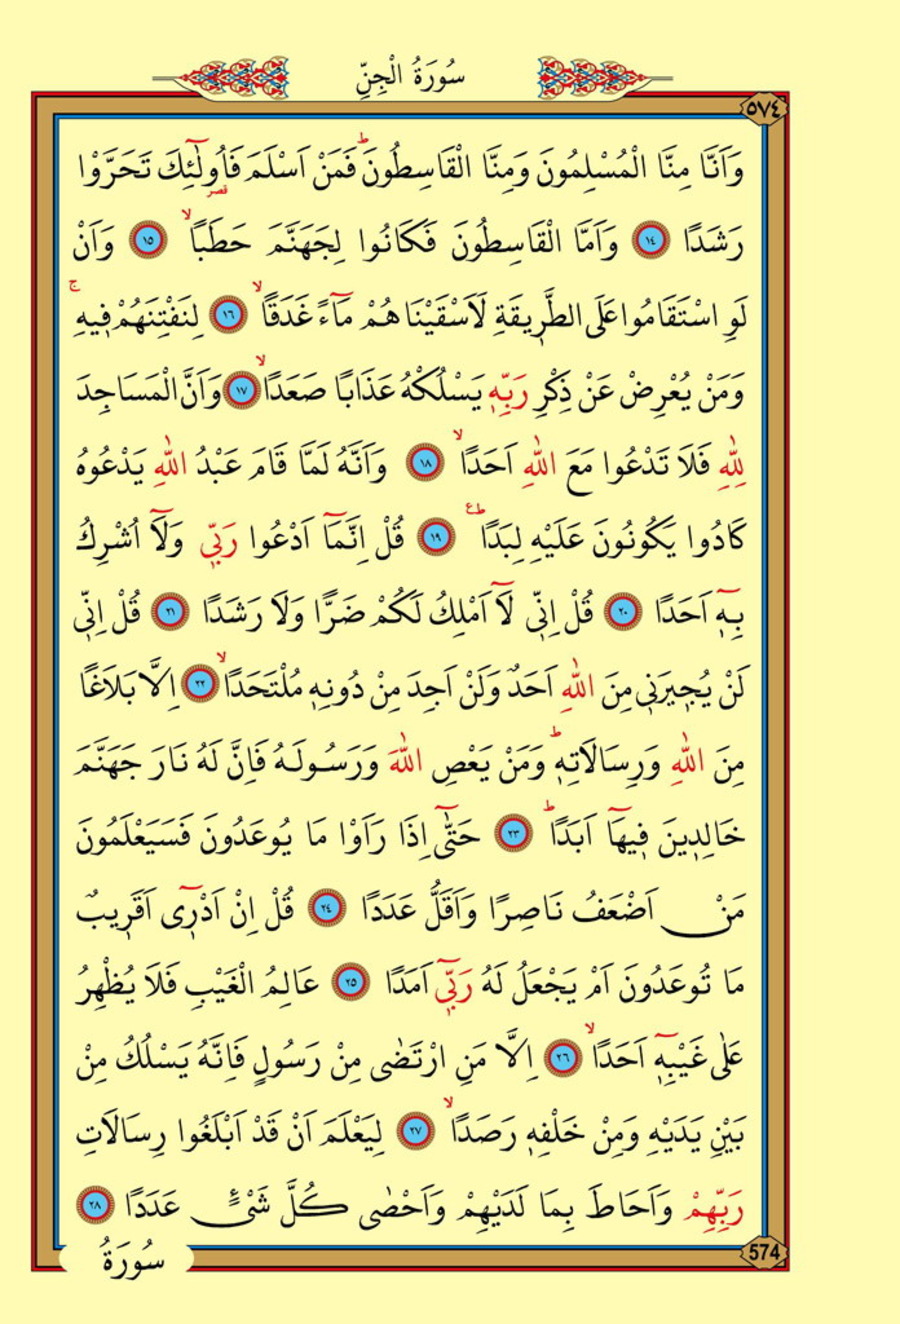 سُورَةُ الْجِنِّ
٥٧٤
وَاَنَّا مِنَّا الْمُسْلِمُونَ وَمِنَّا الْقَاسِطُونَۜ فَمَنْ اَسْلَمَ فَاُو۬لٰٓئِكَ تَحَرَّوْا
قصر
رَشَدًا ﴿١٤﴾ وَاَمَّا الْقَاسِطُونَ فَكَانُوا لِجَهَنَّمَ حَطَبًاۙ ﴿١٥﴾ وَاَنْ
لَوِ اسْتَقَامُوا عَلَى الطَّر۪يقَةِ لَاَسْقَيْنَاهُمْ مَٓاءً غَدَقًاۙ ﴿١٦﴾ لِنَفْتِنَهُمْ ف۪يهِۚ
وَمَنْ يُعْرِضْ عَنْ ذِكْرِ رَبِّه۪ يَسْلُكْهُ عَذَابًا صَعَدًاۙ ﴿١٧﴾ وَاَنَّ الْمَسَاجِدَ
لِلّٰهِ فَلَا تَدْعُوا مَعَ اللّٰهِ اَحَدًاۙ ﴿١٨﴾ وَاَنَّهُ لَمَّا قَامَ عَبْدُ اللّٰهِ يَدْعُوهُ
كَادُوا يَكُونُونَ عَلَيْهِ لِبَدًا ط ع ﴿١٩﴾ قُلْ اِنَّمَٓا اَدْعُوا رَبّ۪ي وَلَٓا اُشْرِكُ
بِه۪ٓ اَحَدًا ﴿٢٠﴾ قُلْ اِنّ۪ي لَٓا اَمْلِكُ لَكُمْ ضَرًّا وَلَا رَشَدًا ﴿٢١﴾ قُلْ اِنّ۪ي
لَنْ يُج۪يرَن۪ي مِنَ اللّٰهِ اَحَدٌ وَلَنْ اَجِدَ مِنْ دُونِه۪ مُلْتَحَدًاۙ ﴿٢٢﴾ اِلَّا بَلَاغًا
مِنَ اللّٰهِ وَرِسَالَاتِه۪ۜ وَمَنْ يَعْصِ اللّٰهَ وَرَسُولَهُ فَاِنَّ لَهُ نَارَ جَهَنَّمَ
خَالِد۪ينَ ف۪يهَٓا اَبَدًاۜ ﴿٢٣﴾ حَتّٰٓى اِذَا رَاَوْا مَا يُوعَدُونَ فَسَيَعْلَمُونَ
مَنْ اَضْعَفُ نَاصِرًا وَاَقَلُّ عَدَدًا ﴿٢٤﴾ قُلْ اِنْ اَدْر۪ٓي اَقَر۪يبٌ
مَا تُوعَدُونَ اَمْ يَجْعَلُ لَهُ رَبّ۪ٓي اَمَدًا ﴿٢٥﴾ عَالِمُ الْغَيْبِ فَلَا يُظْهِرُ
عَلٰى غَيْبِه۪ٓ اَحَدًاۙ ﴿٢٦﴾ اِلَّا مَنِ ارْتَضٰى مِنْ رَسُولٍ فَاِنَّهُ يَسْلُكُ مِنْ
بَيْنِ يَدَيْهِ وَمِنْ خَلْفِه۪ رَصَدًاۙ ﴿٢٧﴾ لِيَعْلَمَ اَنْ قَدْ اَبْلَغُوا رِسَالَاتِ
رَبِّهِمْ وَاَحَاطَ بِمَا لَدَيْهِمْ وَاَحْصٰى كُلَّ شَيْءٍ عَدَدًا ﴿٢٨﴾
574
سُورَةُ